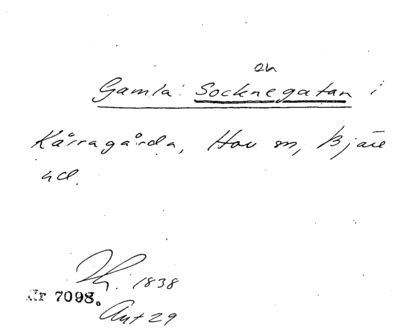 an
Gamla Socknegatan i
Kårragårda, Hov sn, Bjäre
hd.
1838
Nr 7098.
Ant 29